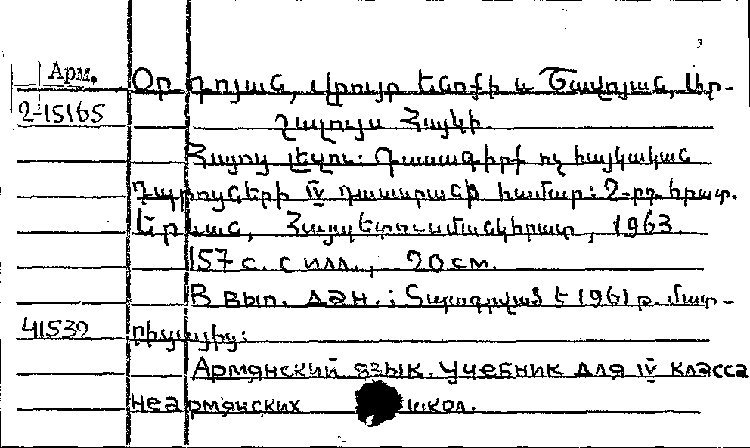 Арм.
2-15165
Օրդոյան, Վրույր Ենոքի և Ծավոյան, Ար-
շալույս Հայկի.
Հայոց լեզու: Դասագիրք ոչ հայկական
դպրոցների IV դասարանի համար: 2-րդ հրատ.
Երևան, Հայպետուսմանկհրատ, 1963.
157 с. с илл., 20 см.
В вып. дан.: Տպագրված է 1961 թ. մատ-
41539
րիցայից:
Армянский язык. Учебник для IV класса
неармянских школ.